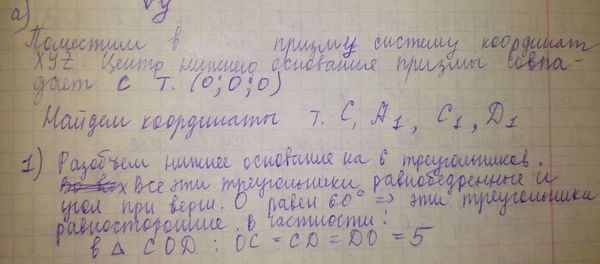 а)
Поместим в призму систему координат
XYZ. Центр нижнего основания призмы совпа-
дает с т. (0;0;0)
Найдем координаты т. C, A1, C1, D1
1) Разобъем нижнее основание на 6 треугольников.
Все эти треугольники равнобедренные и
угол при верш. O равен 60° => эти треугольники
равносторонние. в частности:
в △ COD : OC = CD = DO = 5